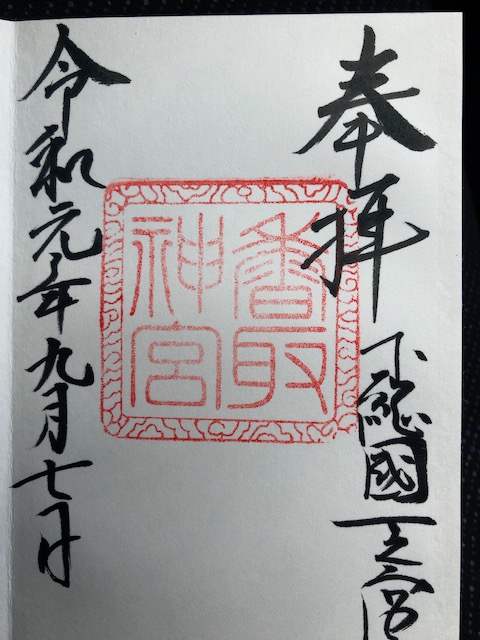 奉拝
下総國一之宮
香取
神宮
令和元年九月七日